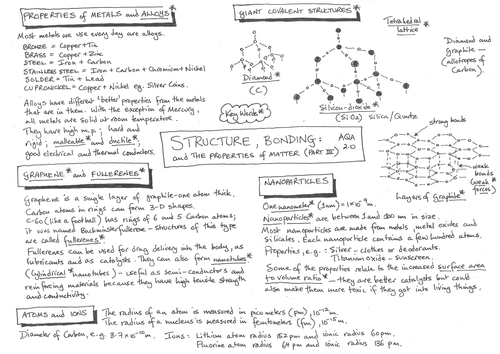 PROPERTIES of METALS and ALLOYS*
Most metals we use every day are alloys.
BRONZE = Copper + Tin
BRASS = Copper + Zinc
STEEL = Iron + Carbon
STAINLESS STEEL = Iron + Carbon + Chromium + Nickel
SOLDER = Tin + Lead
CUPRONICKEL = Copper + Nickel eg. Silver Coins.
Alloys have different 'better' properties from the metals
that are in them. With the exception of Mercury,
all metals are solid at room temperature.
They have high m.p; hard and
rigid; malleable and ductile*;
good electrical and thermal conductors.
GIANT COVALENT STRUCTURES*
Diamond*
(C)
Key Words*
Tetrahedral*
lattice
Silicon-dioxide*
(SiO2) Silica/Quartz
Diamond and
graphite —
(allotropes of
Carbon).
STRUCTURE, BONDING:
and THE PROPERTIES OF MATTER (PART III)
AQA
2.0
strong bonds
weak
bonds
(weak
forces)
Layers of Graphite*
GRAPHENE* and FULLERENES*
Graphene is a single layer of graphite-one atom thick.
Carbon atoms in rings can form 3-D shapes.
C-60 (like a football) has rings of 6 and 5 Carbon atoms;
it was named Buckminsterfullerene - structures of this type
are called fullerenes*
Fullerenes can be used for drug delivery into the body, as
lubricants and as catalysts. They can also form nanotubes*
(Cylindrical* nanotubes) - useful as semi-conductors and
reinforcing materials because they have high tensile strength
and conductivity.
NANOPARTICLES
One nanometer* (1nm) = 1×10⁻⁹m.
Nanoparticles* are between 1 and 100 nm in size.
Most nanoparticles are made from metals, metal oxides and
Silicates. Each nanoparticle contains a few hundred atoms.
Properties, e.g: Silver - clothes or deodorants.
Titanium oxide - sunscreen.
Some of the properties relate to the increased surface area
to volume ratio* - they are better catalysts but could
also make them more toxic if they got into living things.
ATOMS and IONS
The radius of an atom is measured in picometers (pm), 10⁻¹²m.
The radius of a nucleus is measured in femtometers (fm), 10⁻¹⁵m.
Diameter of Carbon, e.g. 3·7×10⁻¹⁰m.
Ions: Lithium atom radius 152 pm and ionic radius 60pm.
Fluorine atom radius 64 pm and ionic radius 136 pm.